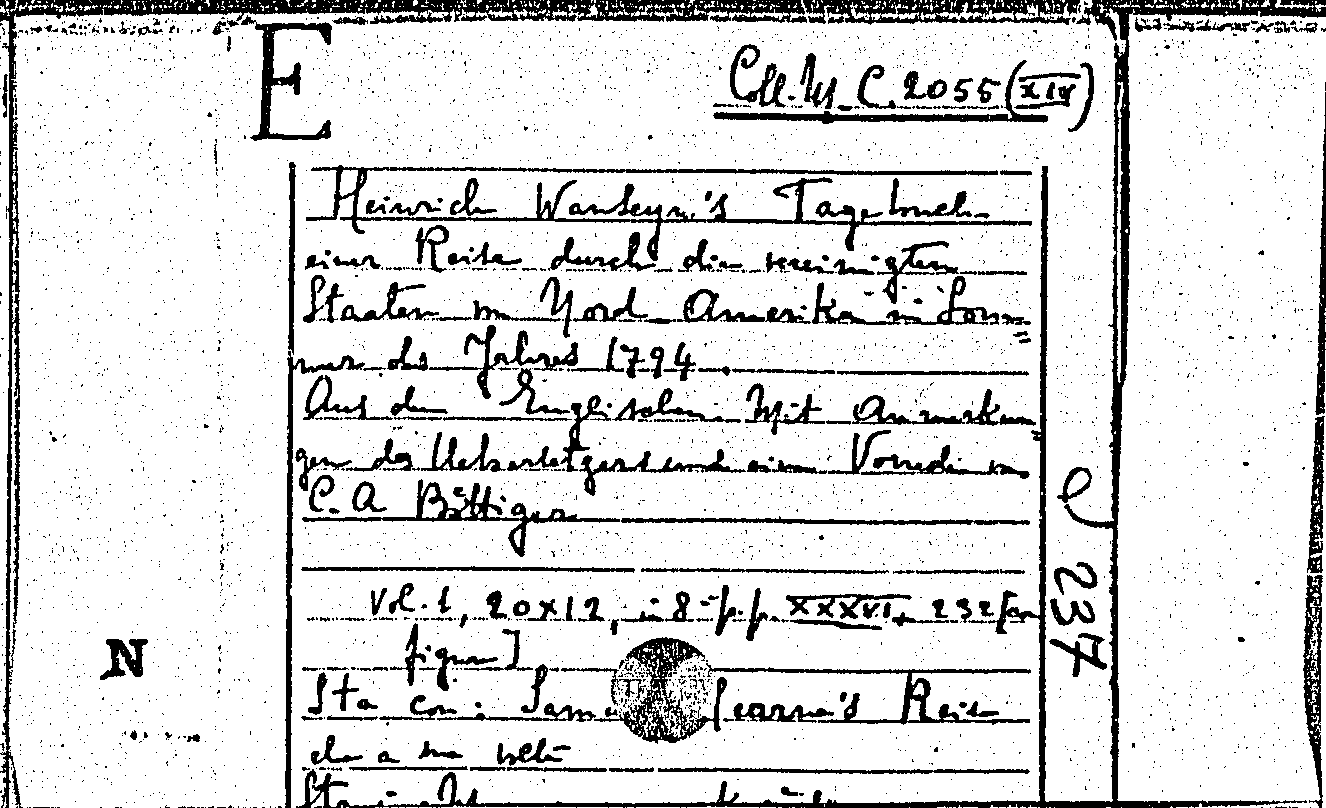 E
Coll. It. C. 2055 (XIV)
Heinrich Wansey's Tagebuch
einer Reise durch die vereinigten
Staaten von Nord-Amerika im Som=
mer des Jahres 1794.
Aus dem Englischen. Mit Anmerkun=
gen des Uebersetzers und einer Vorrede von
C. A Böttiger
C 237
Vol. 1, 20x12, in 8° p.p. XXXVI, 232 [con
figure]
N
Sta con: Reise